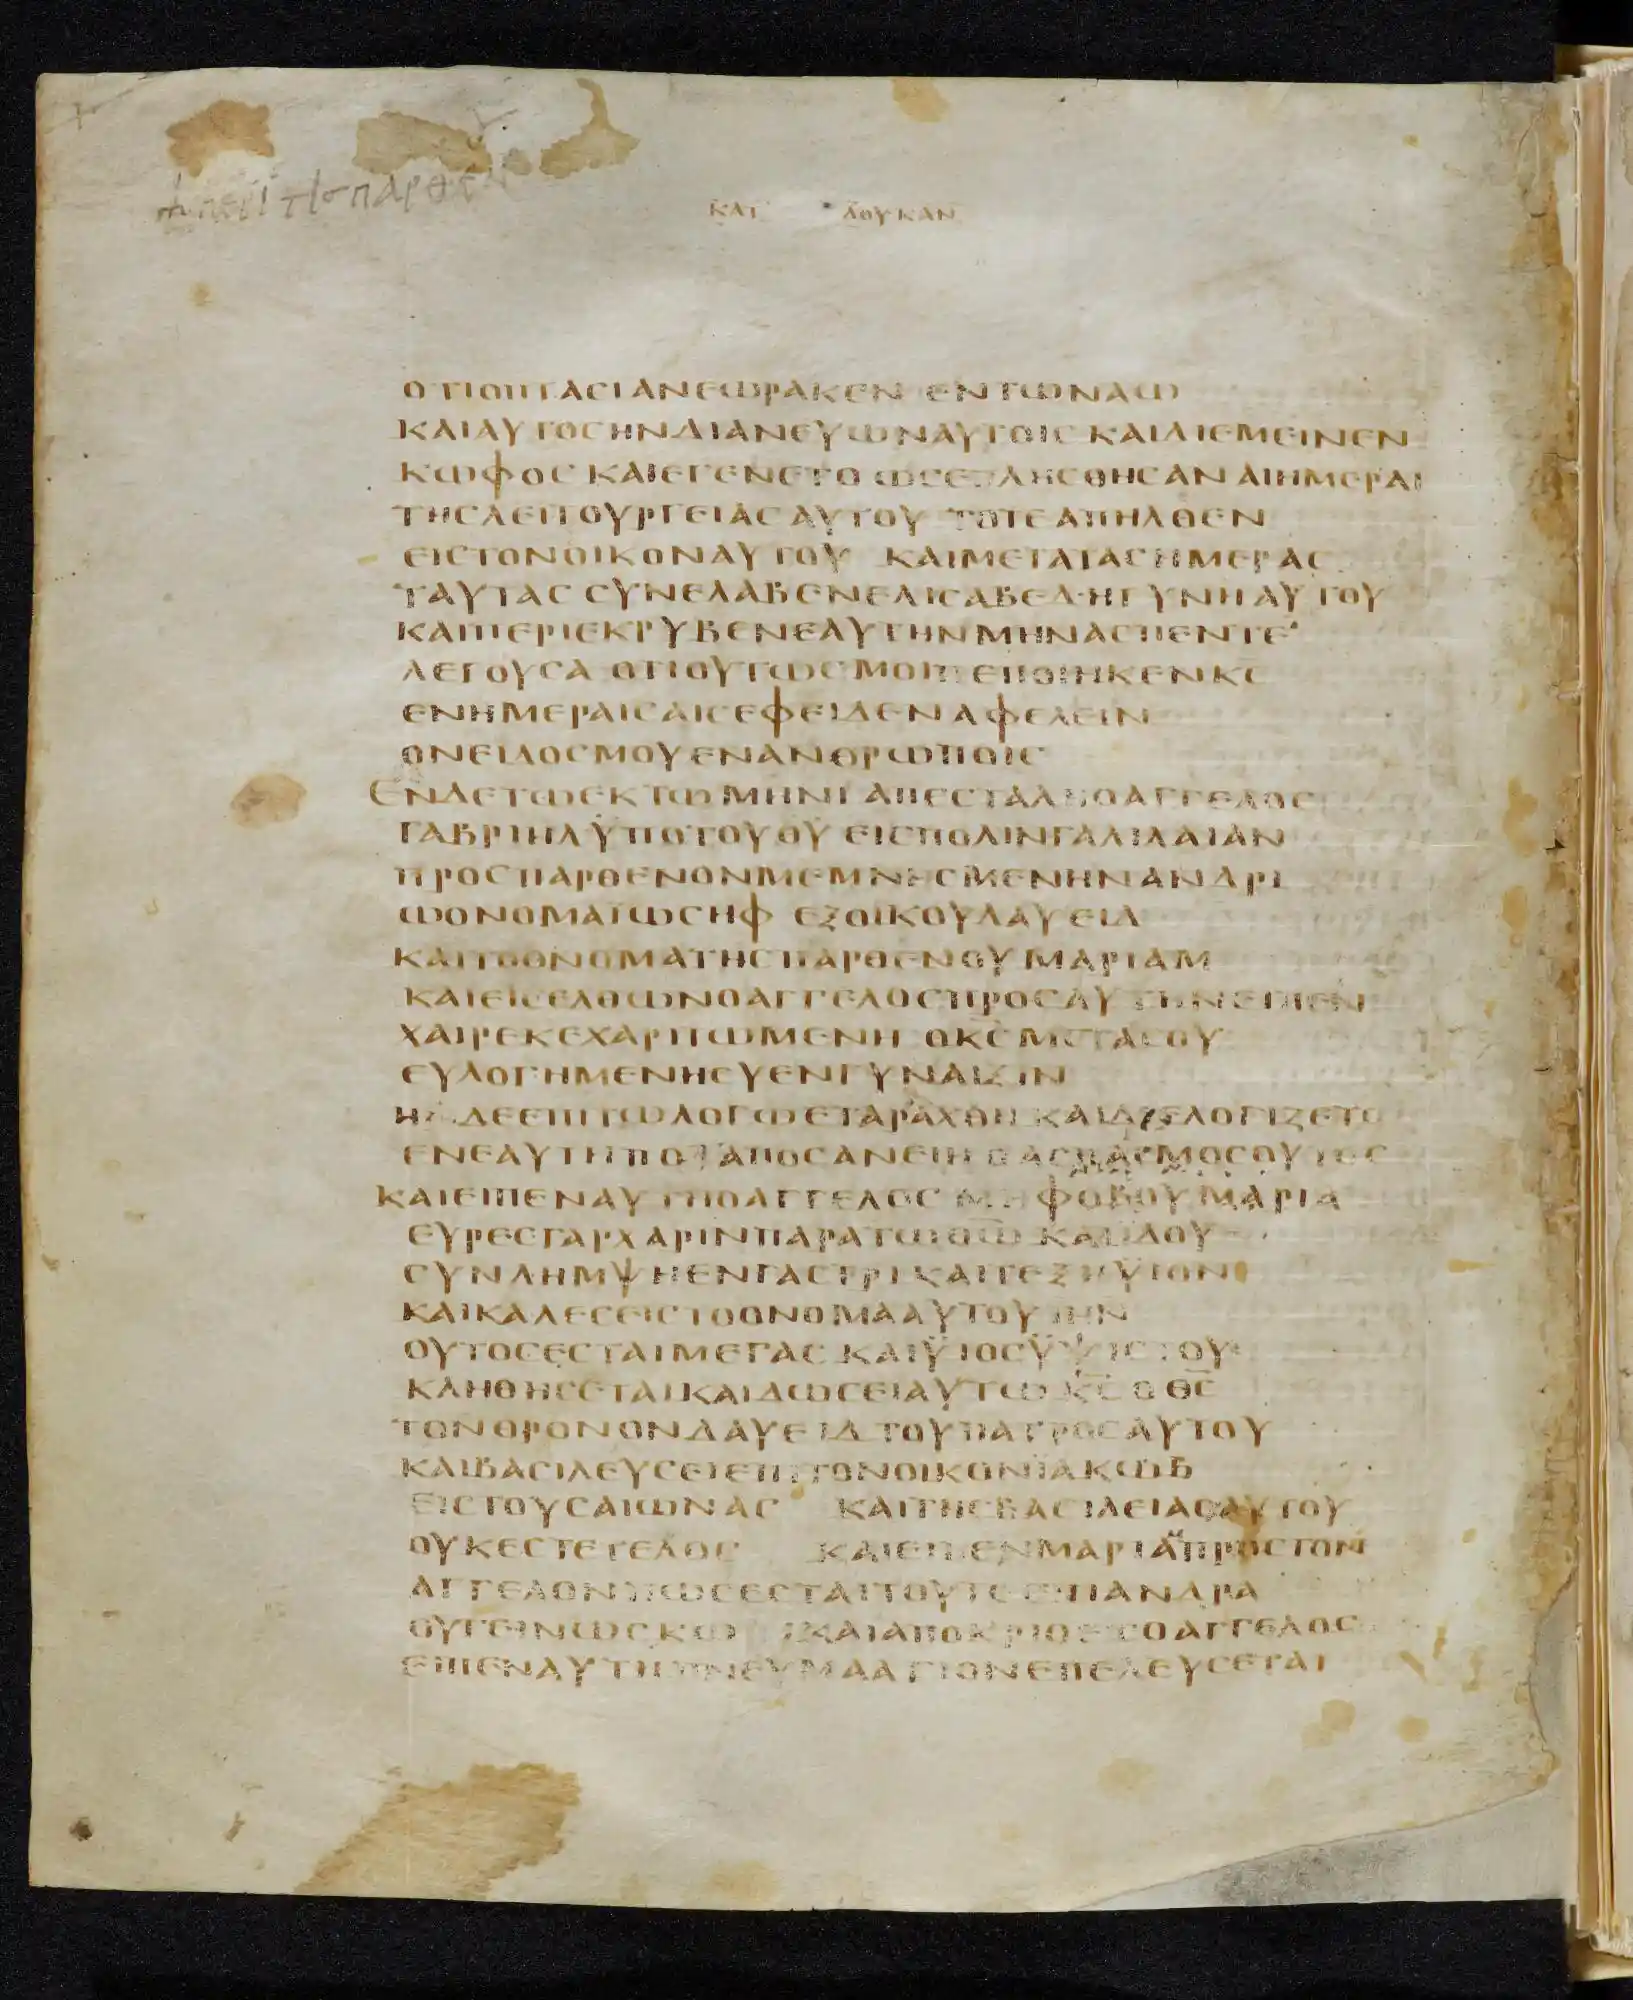 περι τισ παρθε
ΚΑΤ ΛΟΥΚΑΝ
ΟΤΙΟΠΤΑСΙΑΝΕΩΡΑΚΕΝ ΕΝΤΩΝΑΩ
ΚΑΙΑΥΤΟСΗΝΔΙΑΝΕΥΩΝΑΥΤΟΙС ΚΑΙΔΙΕΜΕΙΝΕΝ
ΚΩΦΟС ΚΑΙΕΓΕΝΕΤΟ ΩСΕΠΛΗСΘΗСΑΝ ΑΙΗΜΕΡΑΙ
ΤΗСΛΕΙΤΟΥΡΓΕΙΑСΑΥΤΟΥ ΤΟΤΕΑΠΗΛΘΕΝ
ΕΙСΤΟΝΟΙΚΟΝΑΥΤΟΥ ΚΑΙΜΕΤΑΤΑСΗΜΕΡΑС
ΤΑΥΤΑС СΥΝΕΛΑΒΕΝΕΛΙСΑΒΕΔ·ΗΓΥΝΗΑΥΤΟΥ
ΚΑΙΠΕΡΙΕΚΡΥΒΕΝΕΑΥΤΗΝΜΗΝΑСΠΕΝΤΕ
ΛΕΓΟΥСΑ ΟΤΙΟΥΤΩСΜΟΙΠΕΠΟΙΗΚΕΝΚС
ΕΝΗΜΕΡΑΙСΑΙСΕΦΕΙΔΕΝΑΦΕΛΕΙΝ
ΟΝΕΙΔΟСΜΟΥΕΝΑΝΘΡΩΠΟΙС
ΕΝΔΕΤΩΕΚΤΩΜΗΝΙ ΑΠΕСΤΑΛΗΟΑΓΓΕΛΟС
ΓΑΒΡΙΗΛΫΠΟΤΟΥΘΥ ΕΙСΠΟΛΙΝΓΑΛΙΛΑΙΑΝ
ΠΡΟСΠΑΡΘΕΝΟΝΜΕΜΝΗСΜΕΝΗΝΑΝΔΡΙ
ΩΟΝΟΜΑΪΩСΗΦ ΕΞΟΙΚΟΥΔΑΥΕΙΔ
ΚΑΙΤΟΟΝΟΜΑΤΗСΠΑΡΘΕΝΟΥΜΑΡΙΑΜ
ΚΑΙΕΙСΕΛΘΩΝΟΑΓΓΕΛΟСΠΡΟСΑΥΤΗΝΕΙΠΕΝ
ΧΑΙΡΕΚΕΧΑΡΙΤΩΜΕΝΗ ΟΚС̅ΜΕΤΑСΟΥ
ΕΥΛΟΓΗΜΕΝΗСΥΕΝΓΥΝΑΙΞΙΝ
ΗΔΕΕΠΙΤΩΛΟΓΩΕΤΑΡΑΧΘΗ ΚΑΙΔΙΕΛΟΓΙΖΕΤΟ
ΕΝΕΑΥΤΗΠΟΤΑΠΟСΑΝΕΙΗΟΑСΠΑСΜΟСΟΥΤΟС
ΚΑΙΕΙΠΕΝΑΥΤΗΟΑΓΓΕΛΟС ΜΗΦΟΒΟΥΜΑΡΙΑ
ΕΥΡΕСΓΑΡΧΑΡΙΝΠΑΡΑΤΩΘΩ̅ ΚΑΙΪΔΟΥ
СΥΝΛΗΜΨΗΕΝΓΑСΤΡΙ ΚΑΙΤΕΞΗΫΙΟΝ
ΚΑΙΚΑΛΕСΕΙСΤΟΟΝΟΜΑΑΥΤΟΥΙΗΝ
ΟΥΤΟСΕСΤΑΙΜΕΓΑС ΚΑΙΫΙΟСΫΨΙСΤΟΥ
ΚΛΗΘΗСΕΤΑΙΚΑΙΔΩСΕΙΑΥΤΩ Κ̅С̅ Ο Θ̅С̅
ΤΟΝΘΡΟΝΟΝΔΑΥΕΙΔ ΤΟΥΠΑΤΡΟСΑΥΤΟΥ
ΚΑΙΒΑСΙΛΕΥСΕΙΕΠΙΤΟΝΟΙΚΟΝΪΑΚΩΒ
ΕΙСΤΟΥСΑΙΩΝΑС ΚΑΙΤΗСΒΑСΙΛΕΙΑСΑΥΤΟΥ
ΟΥΚΕСΤΕΤΕΛΟС ΚΑΙΕΙΠΕΝΜΑΡΙΑΠΡΟСΤΟΝ
ΑΓΓΕΛΟΝΠΩСΕСΤΑΙΤΟΥΤΟΕΠΙΑΝΔΡΑ
ΟΥΓΕΙΝΩСΚΩ ΚΑΙΑΠΟΚΡΙΘΕΙСΟΑΓΓΕΛΟС
ΕΙΠΕΝΑΥΤΗΠΝΕΥΜΑΑΓΙΟΝΕΠΕΛΕΥСΕΤΑΙ